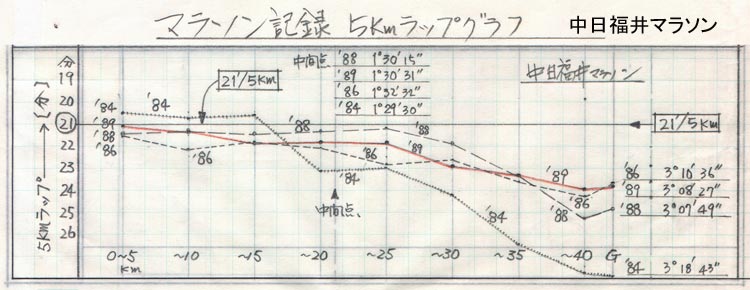 マラソン記録 5Kmラップグラフ
中日福井マラソン
中間点 '88 1°30'15"
'89 1°30'31"
'86 1°32'32"
'84 1°29'30"
中日福井マラソン
分
19
20
21
22
23
24
25
26
5Kmラップ→[分]
21'/5Km
21'/5Km
'84
'89
'88
'86
'84
'86
'88
'84
'86
'89
'88
'84
'89
'86
'88
中間点
'86 3°10'36"
'89 3°08'27"
'88 3°07'49"
'84 3°18'43"
0~5 ~10 ~15 ~20 ~25 ~30 ~35 ~40 G
Km